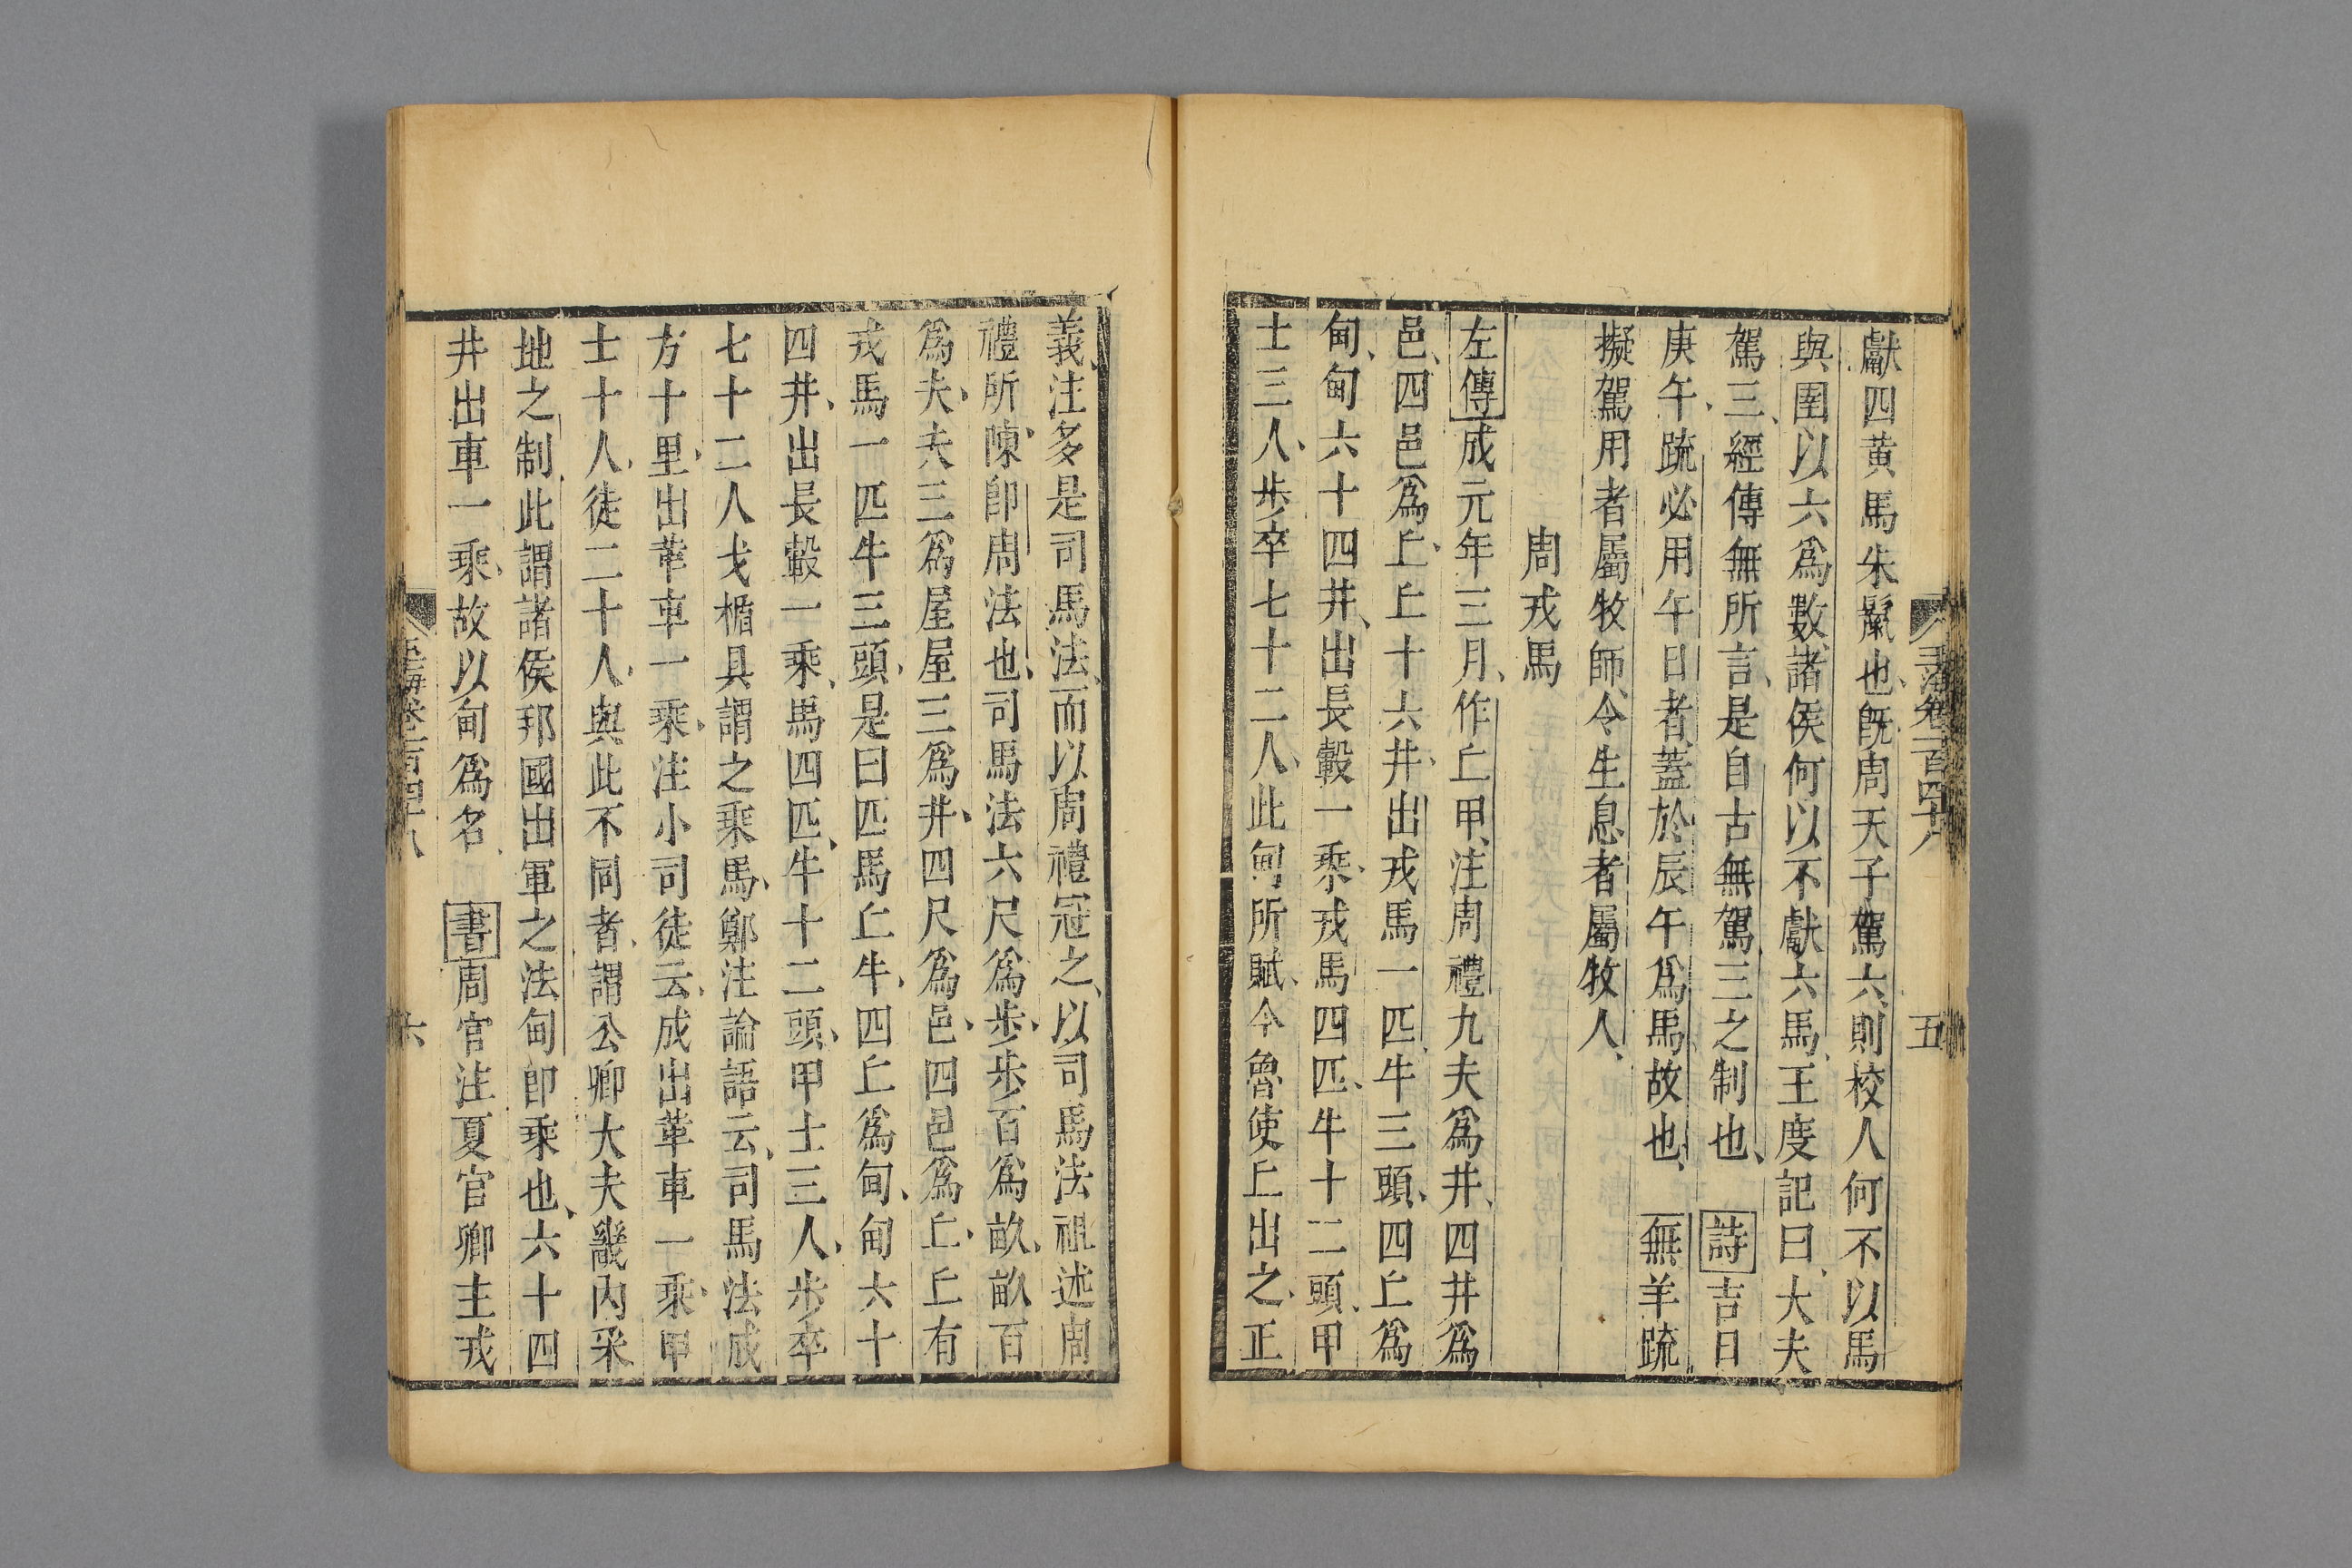 獻四黃馬朱鬣也旣周天子駕六則校人何不以馬
與圉以六爲數諸侯何以不獻六馬王度記曰大夫
駕三經傳無所言是自古無駕三之制也 詩吉日
庚午疏必用午日者蓋於辰午爲馬故也 無羊疏
擬駕用者屬牧師令生息者屬牧人
周戎馬
左傳成元年三月作丄甲注周禮九夫爲井四井爲
邑四邑爲丄丄十六井出戎馬一匹牛三頭四丄爲
甸甸六十四井出長轂一乘戎馬四匹牛十二頭甲
士三人步卒七十二人此甸所賦今魯使丄出之正
義注多是司馬法而以周禮冠之以司馬法祖述周
禮所陳卽周法也司馬法六尺爲步步百爲畝畝百
爲夫夫三爲屋屋三爲井四尺爲邑四邑爲丄丄有
戎馬一匹牛三頭是曰匹馬丄牛四丄爲甸甸六十
四井出長轂一乘馬四匹牛十二頭甲士三人步卒
七十二人戈楯具謂之乘馬鄭注論語云司馬法成
方十里出革車一乘注小司徒云成出革車一乘甲
士十人徒二十人與此不同者謂公卿大夫畿內采
地之制此謂諸侯邦國出軍之法甸卽乘也六十四
井出車一乘故以甸爲名 書周官注夏官卿主戎
卷一百四十八
五
卷一百四十八
六